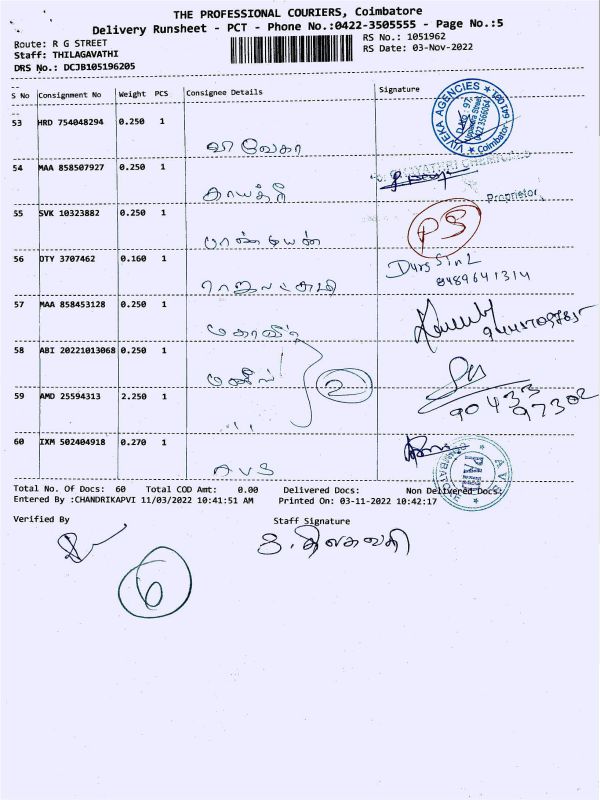 THE PROFESSIONAL COURIERS, Coimbatore
Delivery Runsheet - PCT - Phone No.:0422-3505555 - Page No.:5
Route: R G STREET
RS No.: 1051962
Staff: THILAGAVATHI
RS Date: 03-Nov-2022
DRS No.: DCJB105196205
S No Consignment No Weight PCS Consignee Details Signature
53 HRD 754048294 0.250 1
விவேகா
VIVEKA AGENCIES
Coimbatore
54 MAA 858507927 0.250 1
காயத்ரி
Proprietor
55 SVK 10323882 0.250 1
பாண்டியன்
PS
56 DTY 3707462 0.160 1
8489641314
57 MAA 858453128 0.250 1
58 ABI 20221013068 0.250 1
2
59 AMD 25594313 2.250 1
90433
97302
60 IXM 502404918 0.270 1
AVS
Total No. Of Docs: 60 Total COD Amt: 0.00 Delivered Docs: Non Delivered Docs:
Entered By :CHANDRIKAPVI 11/03/2022 10:41:51 AM Printed On: 03-11-2022 10:42:17
Verified By Staff Signature
6